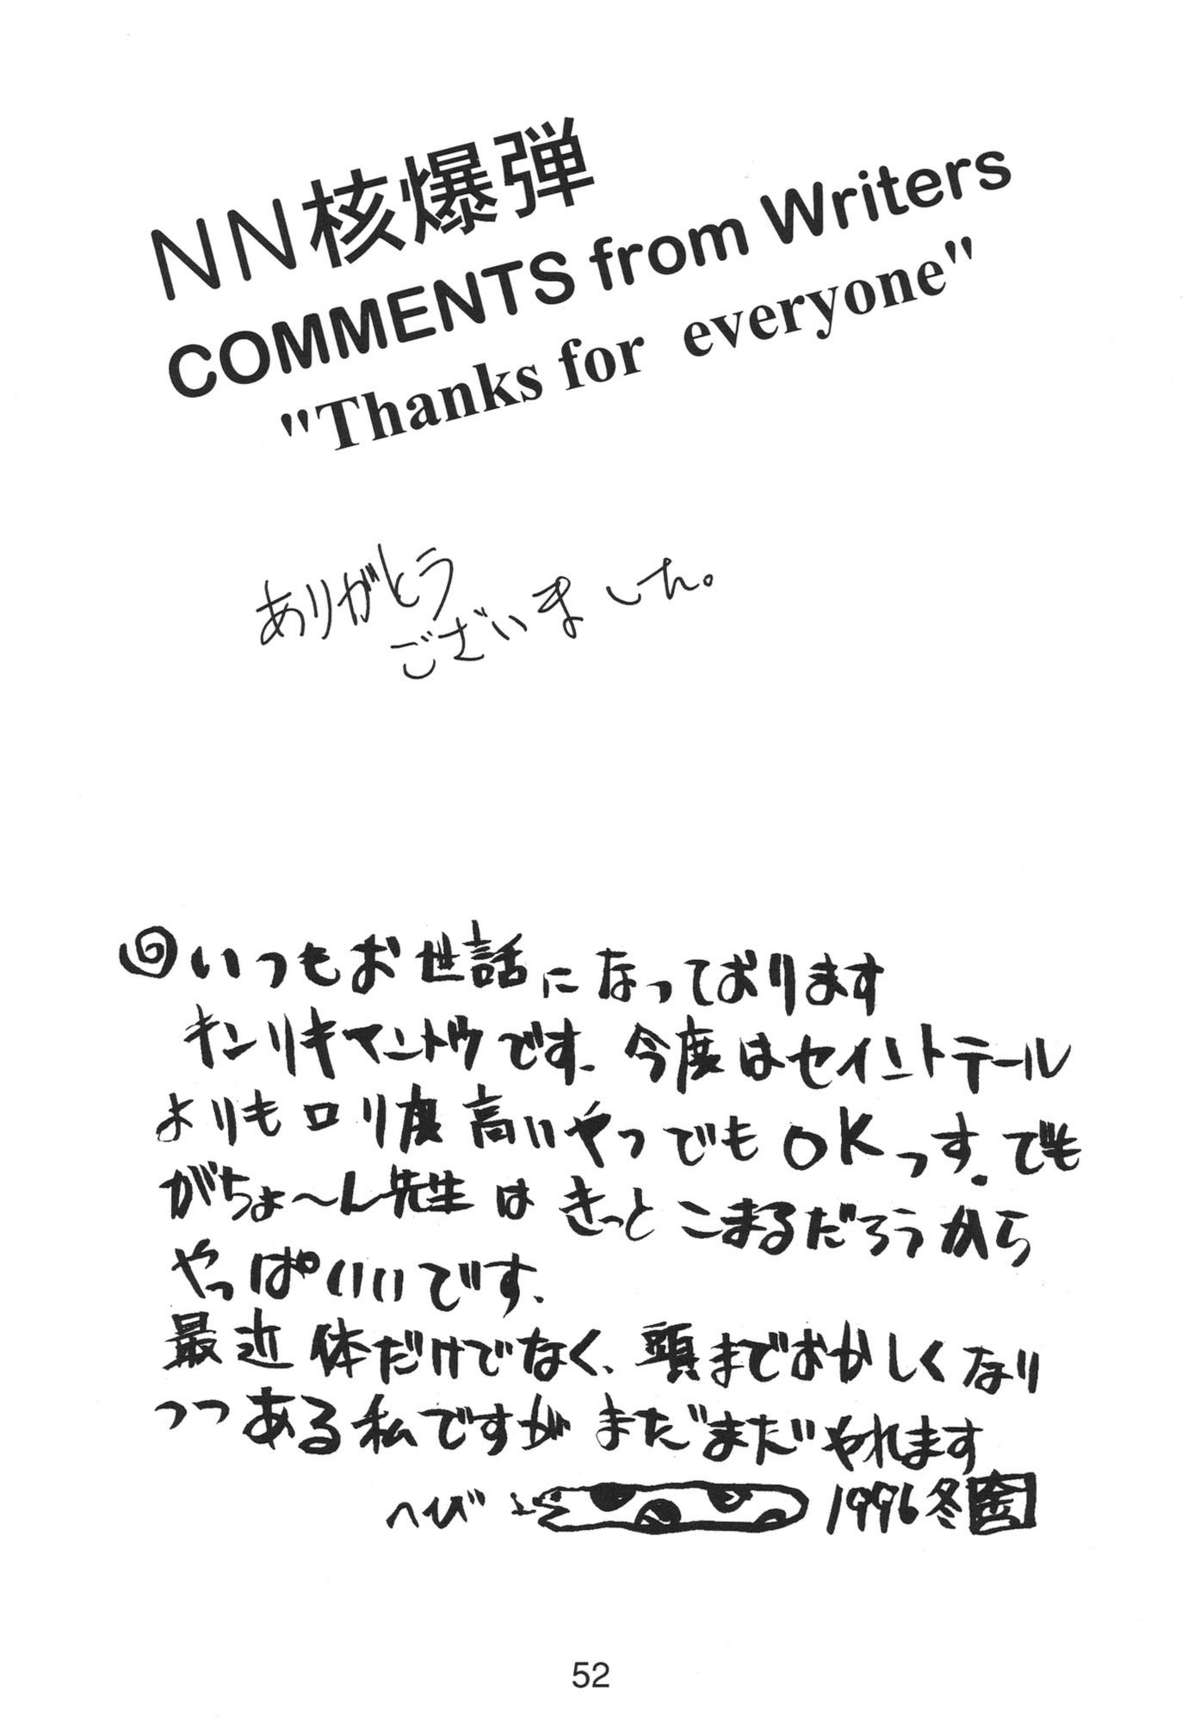 NN核爆弾
COMMENTS from Writers
"Thanks for everyone"
ありがとう
ございました。
いつもお世話になっております
キンリキマントウです. 今度はセイントテール
よりもロリ度高いやつでもOKっす. でも
がちょ〜ん先生はきっとこまるだろうから
やっぱいいです.
最近体だけでなく、頭までおかしくなり
つつある私ですがまだまだやれます
へび 1996冬 金
52